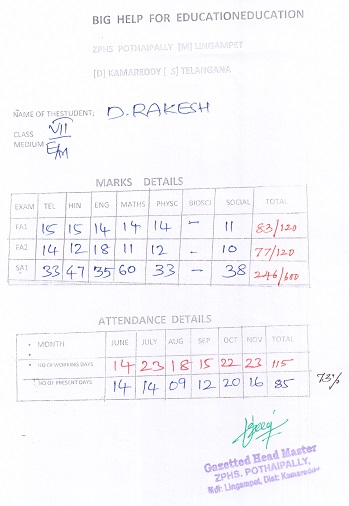 BIG HELP FOR EDUCATIONEDUCATION
ZPHS POTHAIPALLY [M] LINGAMPET
[D] KAMAREDDY [ S] TELANGANA
NAME OF THESTUDENT; D.RAKESH
CLASS VII
MEDIUM E/M
MARKS DETAILS
EXAM TEL HIN ENG MATHS PHYSC BIOSCI SOCIAL TOTAL
FA1 15 15 14 14 14 - 11 83/120
FA2 14 12 18 11 12 - 10 77/120
SA1 33 47 35 60 33 - 38 246/600
ATTENDANCE DETAILS
MONTH JUNE JULY AUG SEP OCT NOV TOTAL
NO OF WORKING DAYS 14 23 18 15 22 23 115
NO OF PRESENT DAYS 14 14 09 12 20 16 85 73%
Gazetted Head Master
ZPHS. POTHAIPALLY,
Mdl: Lingampet, Dist: Kamareddy